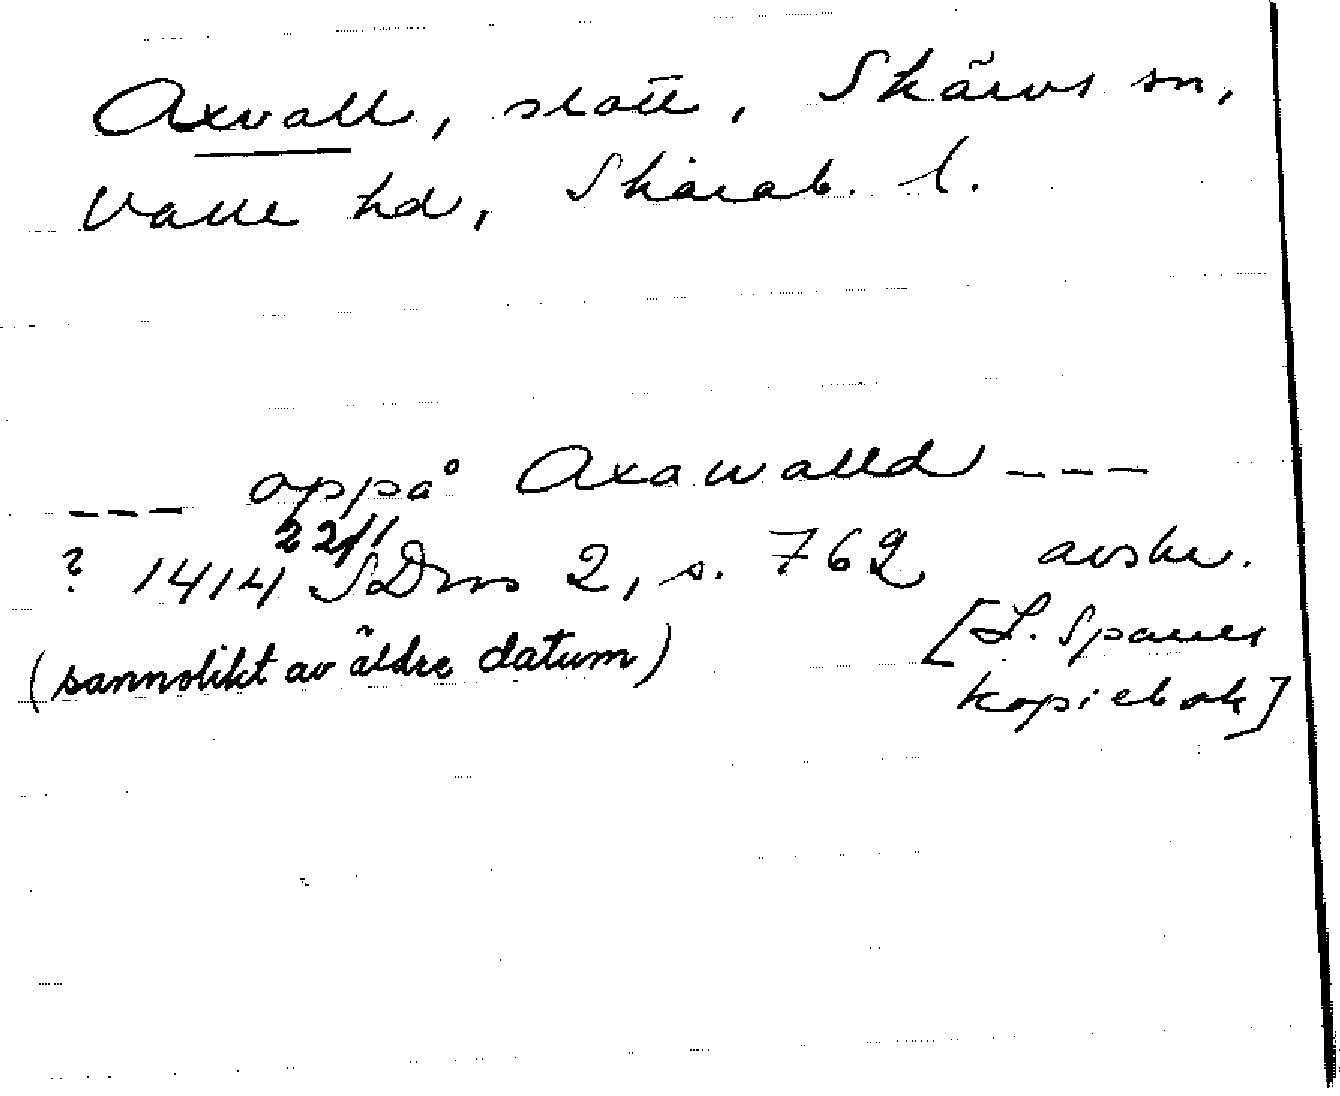 Axvall, slott, Skärvs sn,
Valle hd, Skarab. l.
--- oppå Axawalld ---
22/1
? 1414 SDns 2, s. 762 avskr.
(sannolikt av äldre datum) [L. Sparres
kopiebok]